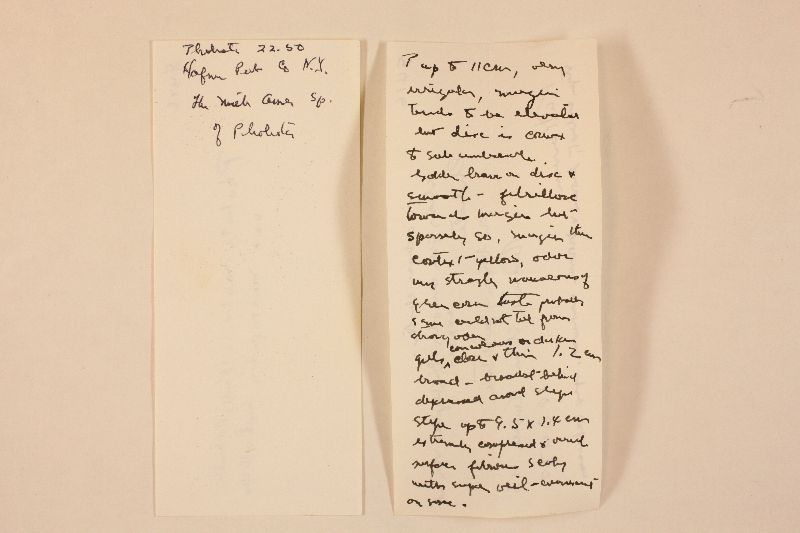 Pholiota 22.50
N.Y.
The North Amer Sp.
of Pholiota
P up to 11 cm, very
irregular, margin
tends to be elevated
but disc is convex
to subumbonate.
Golden brown on disc &
smooth - fibrillose
towards margin but
sparsely so, margin thin
context - yellow, odor
very strongly of
green corn taste probably
same could not tell from
strong odor
concolorous or darker
gills, close & thin 1.2 cm
broad - broadest behind
depressed around stipe
stipe up to 9.5 x 1.4 cm
extremely compressed &
surface fibrous scaly
with super veil - evanescent
on some.